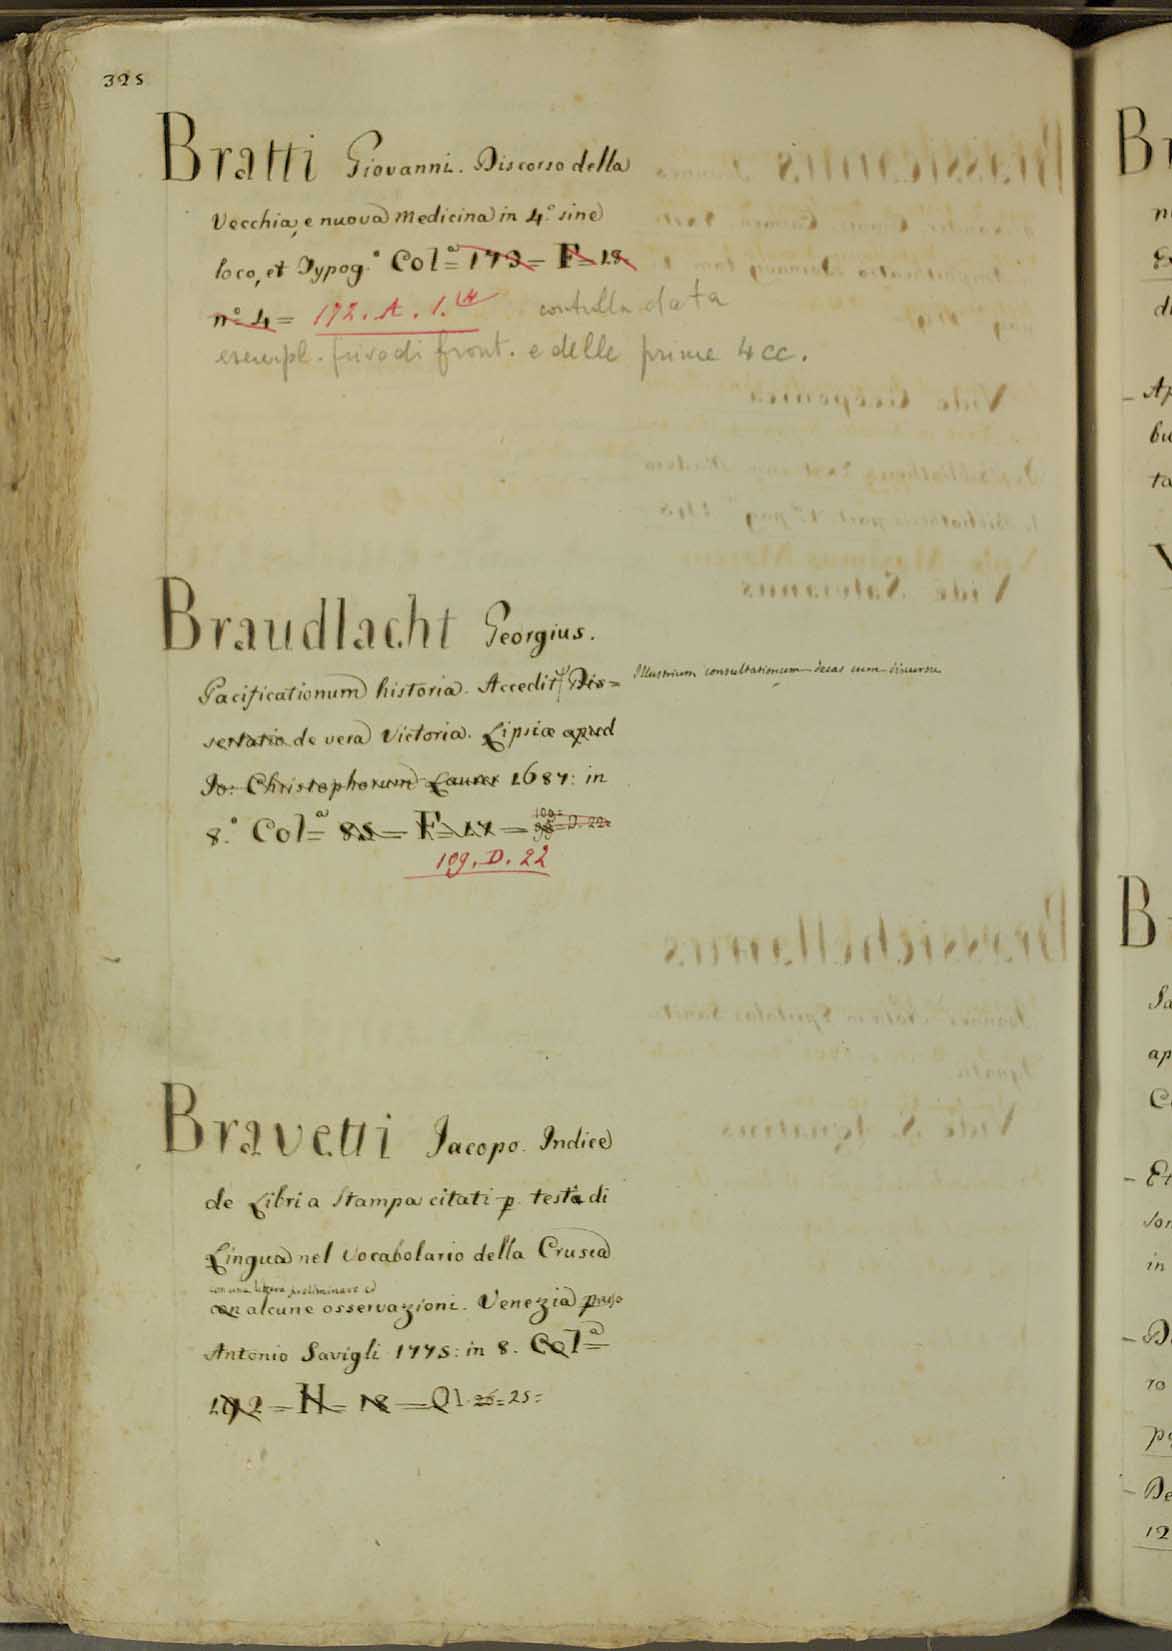 325
Bratti Giovanni. Discorso della
Vecchia, e nuova Medicina in 4.° sine
loco, et Typog.° Col=ª 173= F=18
n° 4= 172. A. 1. data
esempl. privo di front. e delle prime 4 cc.
Braudlacht Georgius.
Pacificationum historia. Accedit Dis= Illustrium consultationum decas cum discursu
sertatio de vera Victoria. Lipsiæ apud
Jo: Christophorum Laurer 1687: in
8.° Col=ª 85= F=17= 109= D. 22=
109. D. 22
Bravetti Jacopo. Indice
de Libri a Stampa citati p. testi di
Lingua nel Vocabolario della Crusca
con una lettera preliminare ed
con alcune osservazioni. Venezia presso
Antonio Savigli 1775: in 8. Col=ª
192= N= 18= 25=
B
n
di
Ap
bu
ta
V
B
Sa
ap
Et
in
ro
De
12